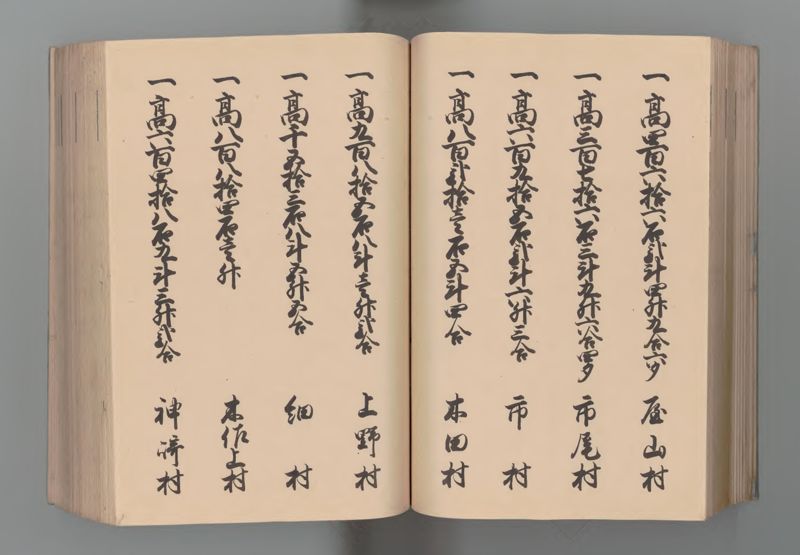 一高四百六拾六石弐斗四升九合六夕 屋山村
一高三百七拾六石三斗九升六合四夕 市尾村
一高六百九拾五石弐斗六升三合 市村
一高八百弐拾壱石五斗四合 本田村
一高九百八拾五石八斗壱升弐合 上野村
一高千五拾三石八斗五升五合 細村
一高八百八拾四石壱升 木佐上村
一高六百四拾八石九斗三升弐合 神崎村